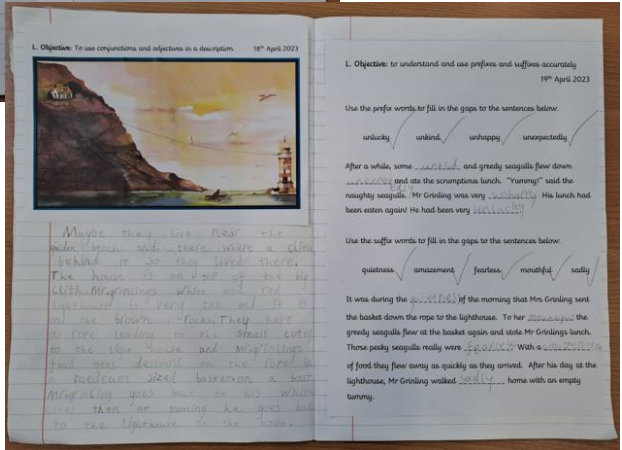 L. Objective: To use conjunctions and adjectives in a description 18th April 2023
Maybe they live near the
beach and there where a clith
behind it so they lived there.
The house is on top of the big
clith. Mr grinlings white and red
lighthouse is very tall and it is
on the brown rocks. They have
a rope leading to the small
to the light house and mr grinlings
food gets on the rope in
a medeum sized basket on a boat
Mr grinling goes back to his white
then at morning he goes back
to the lighthouse on the boat.
L. Objective: to understand and use prefixes and suffixes accurately
19th April 2023
Use the prefix words to fill in the gaps to the sentences below.
unlucky unkind unhappy unexpectedly
After a while, some unkind and greedy seagulls flew down
and ate the scrumptious lunch. "Yummy!" said the
naughty seagulls. Mr Grinling was very unhappy. His lunch had
been eaten again! He had been very unlucky
Use the suffix words to fill in the gaps to the sentences below.
quietness amazement fearless mouthful sadly
It was during the quietness of the morning that Mrs Grinling sent
the basket down the rope to the lighthouse. To her mouthful the
greedy seagulls flew at the basket again and stole Mr Grinlings lunch.
Those pesky seagulls really were fearless With a
of food they flew away as quickly as they arrived. After his day at the
lighthouse, Mr Grinling walked sadly home with an empty
tummy.